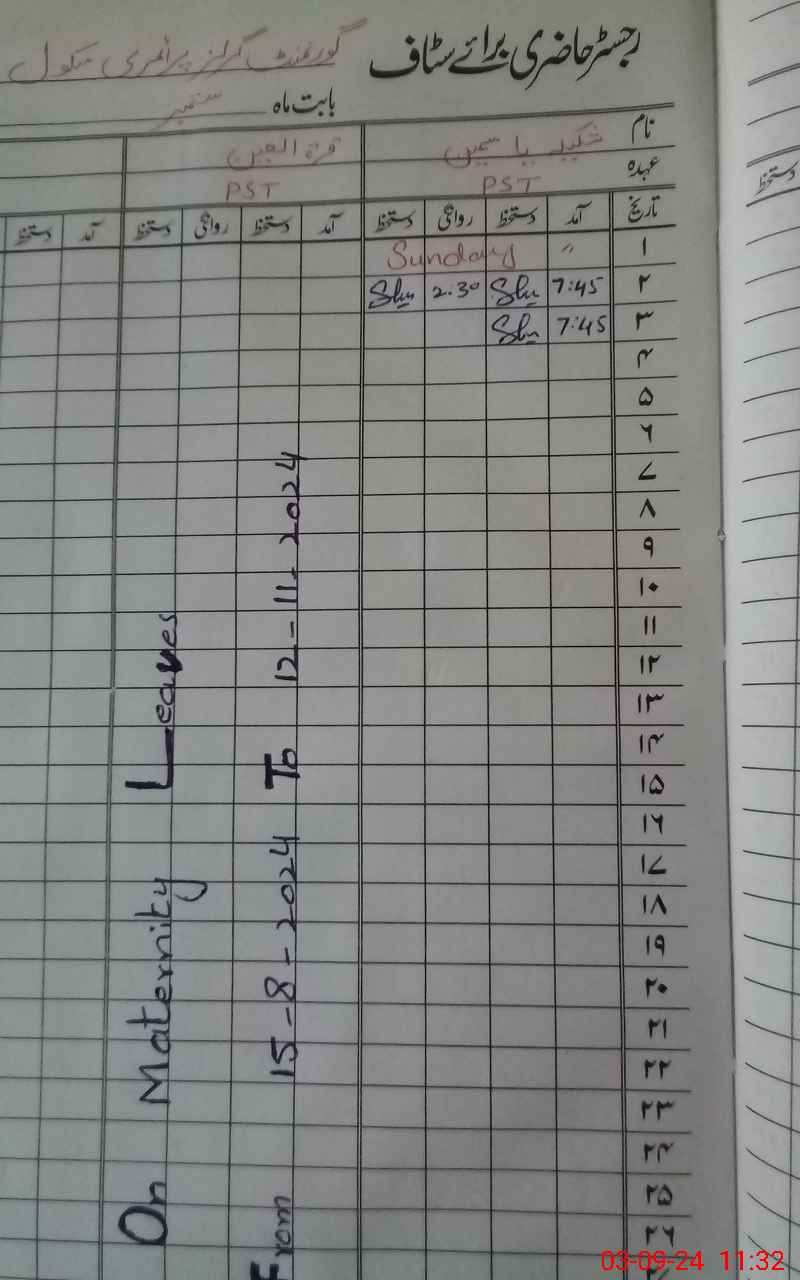 رجسٹر حاضری برائے سٹاف گورنمنٹ گرلز پرائمری سکول
بابت ماہ ستمبر
نام شکیلہ یاسمین قرۃ العین
عہدہ PST PST
تاریخ آمد دستخط روانگی دستخط آمد دستخط روانگی دستخط آمد دستخط
۱ " Sunday
۲ 7:45 2:30
۳ 7:45
۴
۵
۶
۷
۸
۹
۱۰
۱۱
۱۲
۱۳
۱۴
۱۵
۱۶
۱۷
۱۸
۱۹
۲۰
۲۱
۲۲
۲۳
۲۴
۲۵
۲۶
On Maternity Leaves
From 15-8-2024 To 12-11-2024
دستخط
03-09-24 11:32